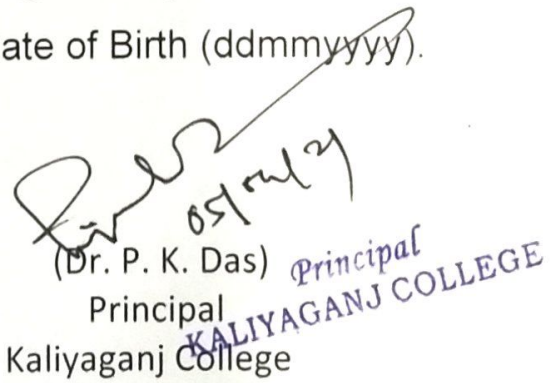 ate of Birth (ddmmyyyy).
(Dr. P. K. Das)
Principal
Kaliyaganj College
Principal
KALIYAGANJ COLLEGE